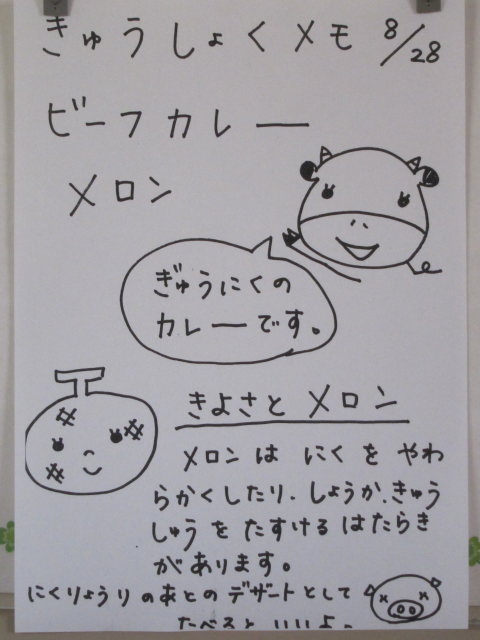 きゅうしょくメモ 8/28
ビーフカレー
メロン
ぎゅうにくの
カレーです。
きよさとメロン
メロンは にくを やわ
らかくしたり、しょうか、きゅう
しゅうを たすける はたらき
があります。
にくりょうりのあとの デザートとして
たべると いいよ。